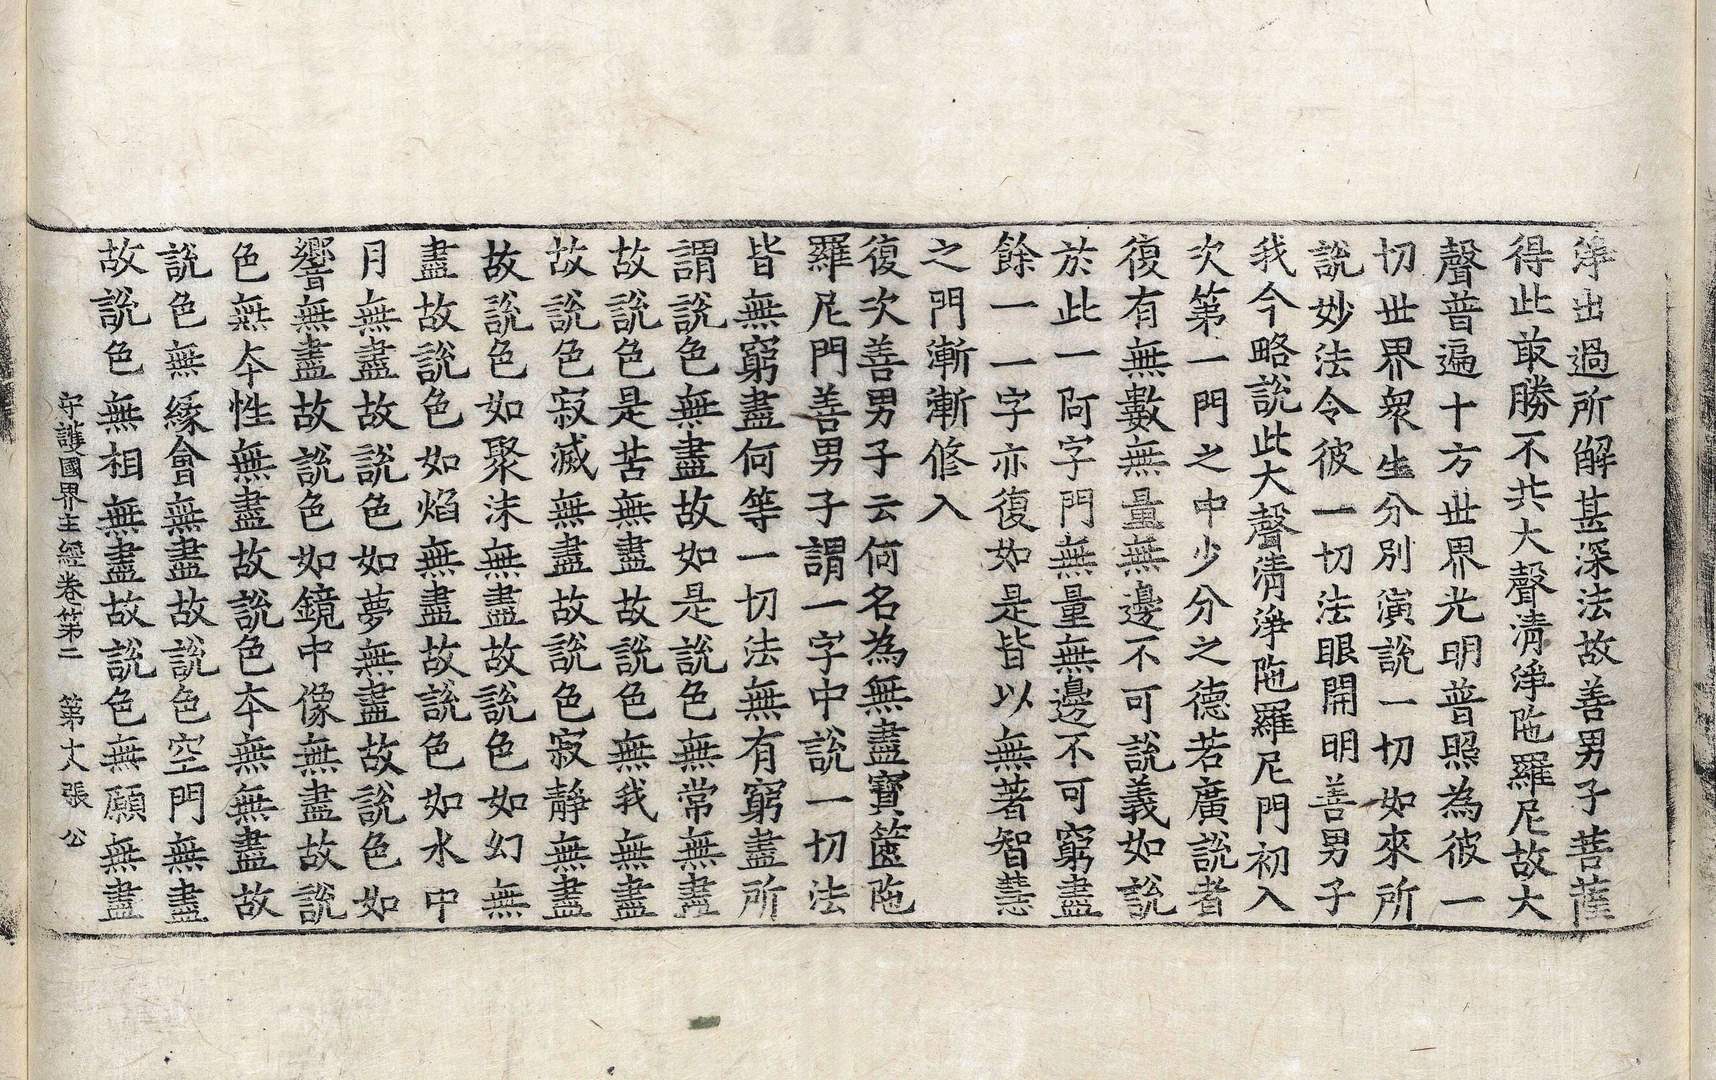 淨出過所解甚深法故善男子菩薩
得此㝡勝不共大聲清淨陁羅尼故大
聲普遍十方世界光明普照為彼一
切世界衆生分別演說一切如來所
說妙法令彼一切法眼開明善男子
我今略說此大聲清淨陁羅尼門初入
次第一門之中少分之德若廣說者
復有無數無量無邊不可說義如說
於此一阿字門無量無邊不可窮盡
餘一一字亦復如是皆以無著智慧
之門漸漸修入
復次善男子云何名為無盡寶篋陁
羅尼門善男子謂一字中說一切法
皆無窮盡何等一切法無有窮盡所
謂說色無盡故如是說色無常無盡
故說色是苦無盡故說色無我無盡
故說色寂滅無盡故說色寂靜無盡
故說色如聚沫無盡故說色如幻無
盡故說色如焰無盡故說色如水中
月無盡故說色如夢無盡故說色如
響無盡故說色如鏡中像無盡故說
色無本性無盡故說色本無無盡故
說色無緣會無盡故說色空門無盡
故說色無相無盡故說色無願無盡
守護國界主經卷第二 第十八張 公